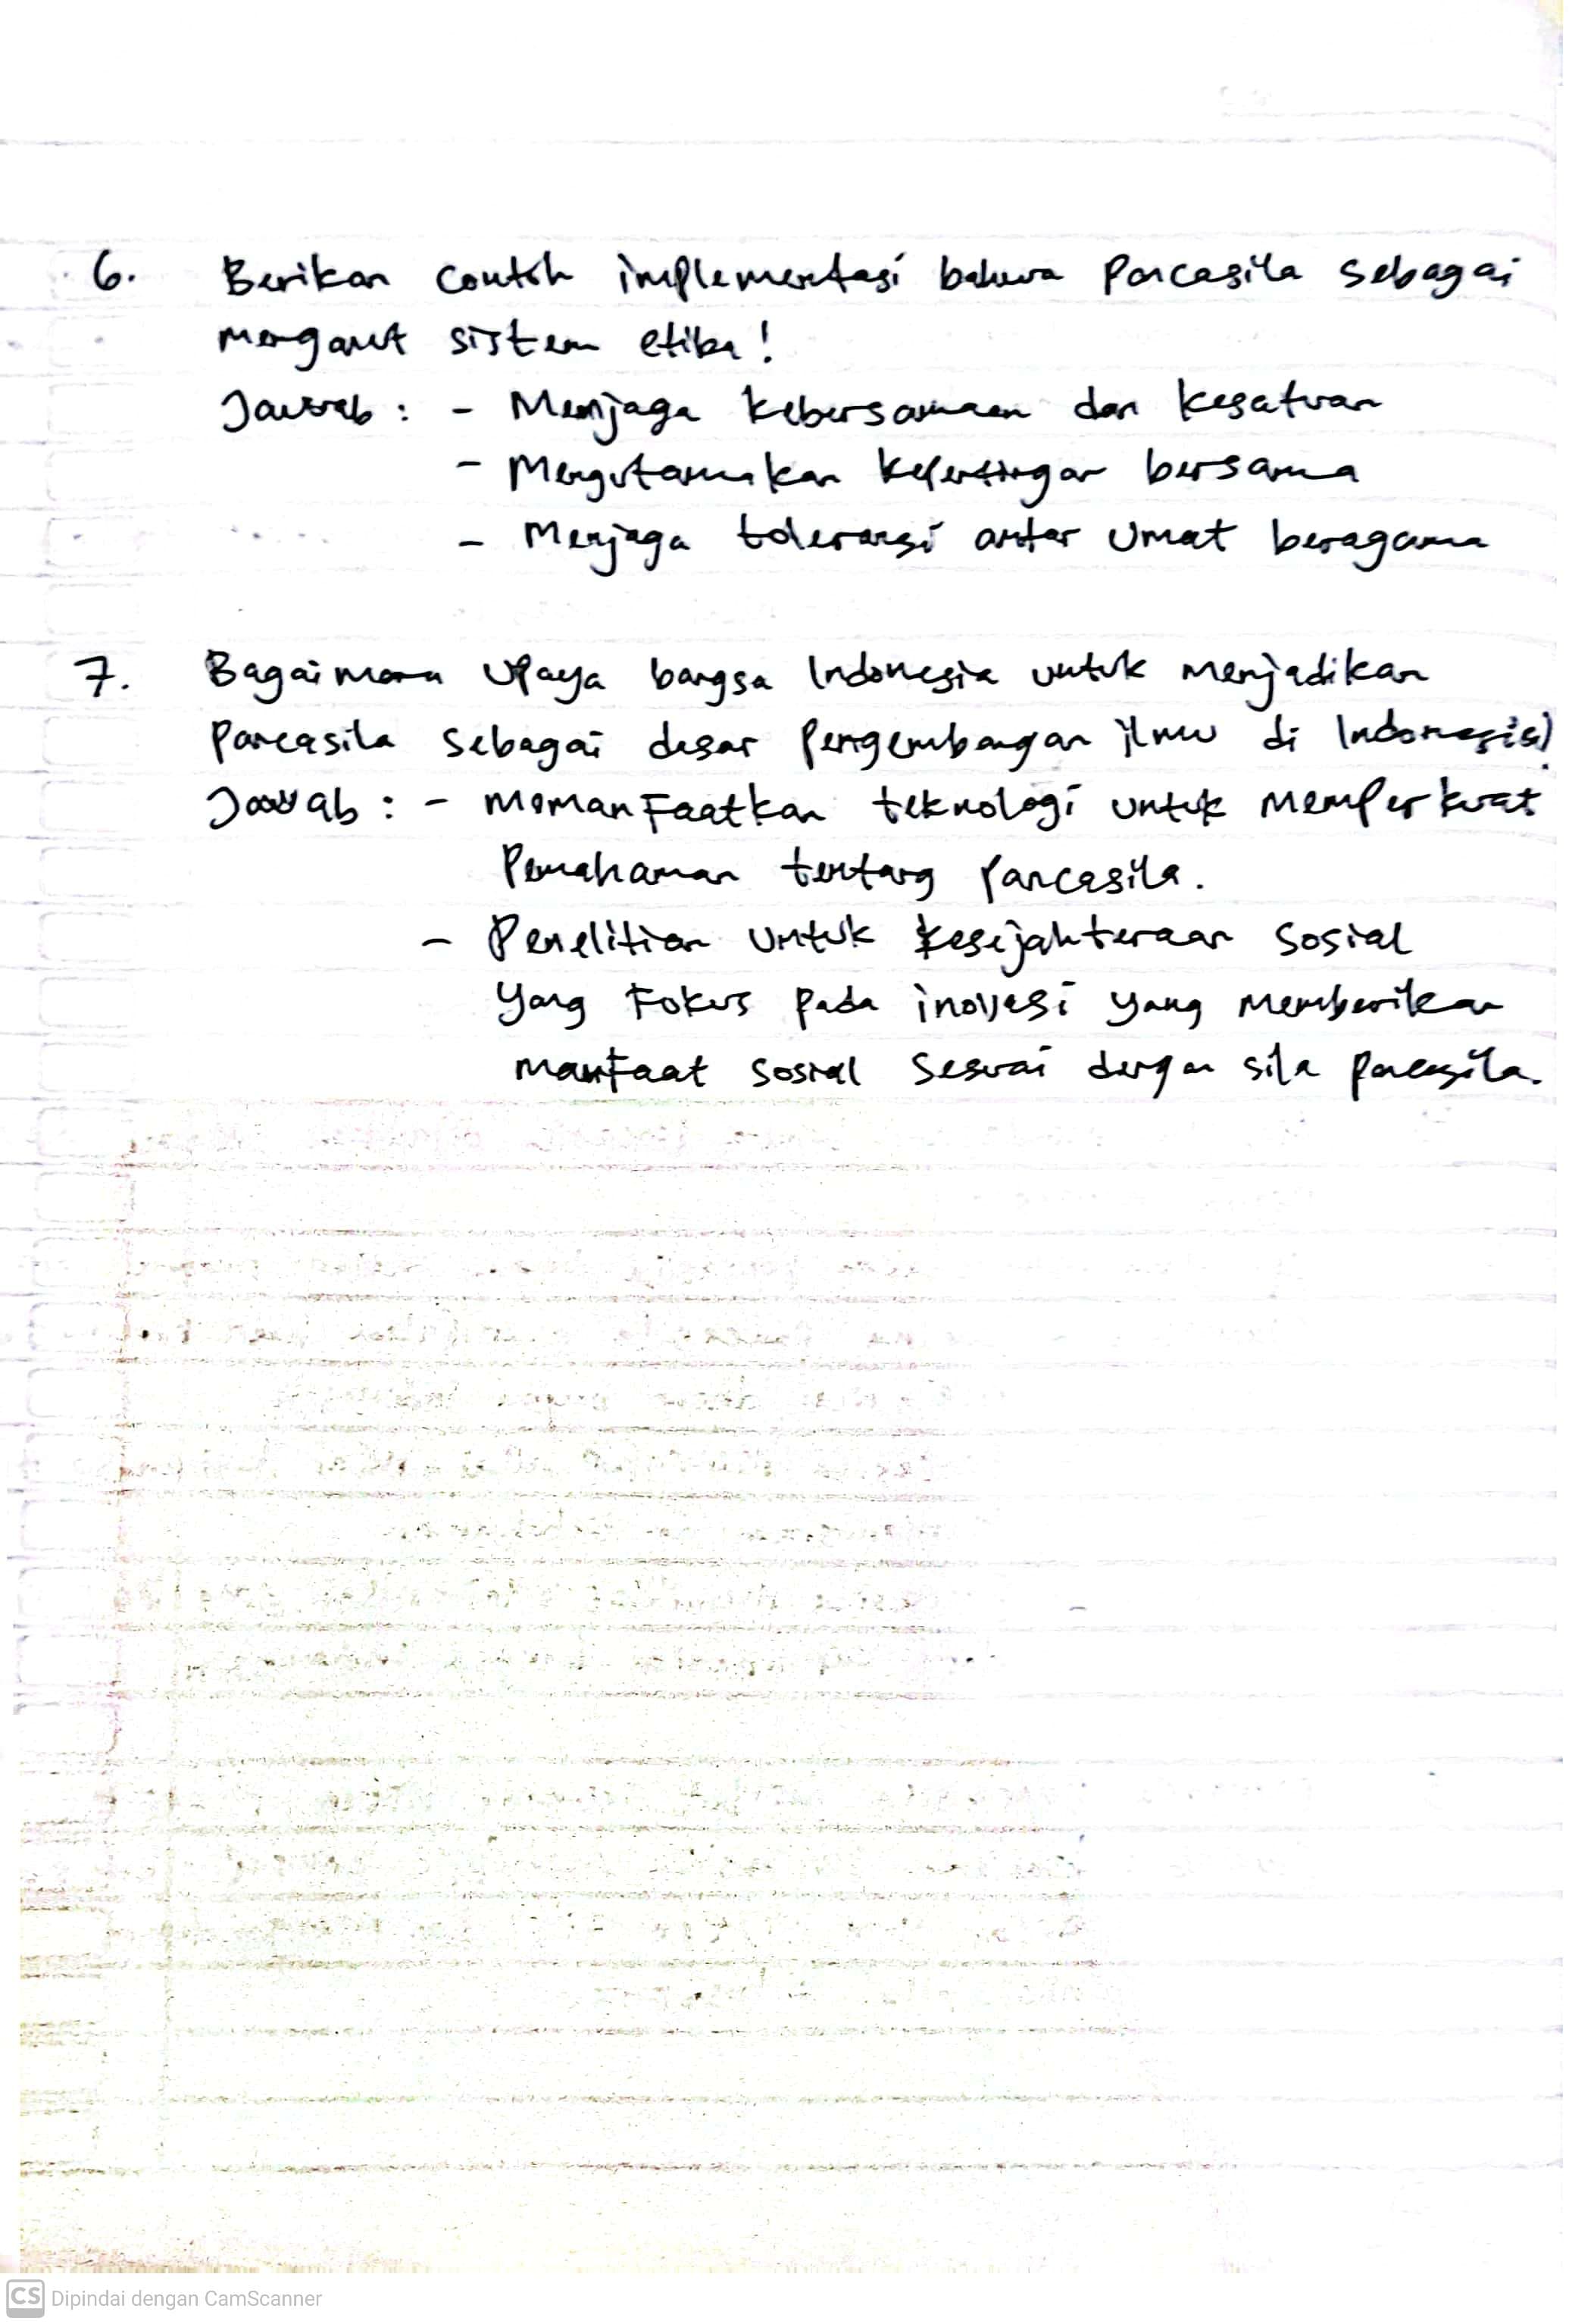 6. Berikan contoh implementasi bahwa Pancasila sebagai
menganut sistem etika!
Jawab : - Menjaga kebersamaan dan kesatuan
- Mengutamakan kepentingan bersama
- Menjaga toleransi antar umat beragama
7. Bagaimana upaya bangsa Indonesia untuk menjadikan
Pancasila sebagai dasar pengembangan ilmu di Indonesia!
Jawab : - Memanfaatkan teknologi untuk memperkuat
Pemahaman tentang Pancasila.
- Penelitian untuk kesejahteraan sosial
yang fokus pada inovasi yang memberikan
manfaat sosial sesuai dengan sila pancasila.
CS Dipindai dengan CamScanner